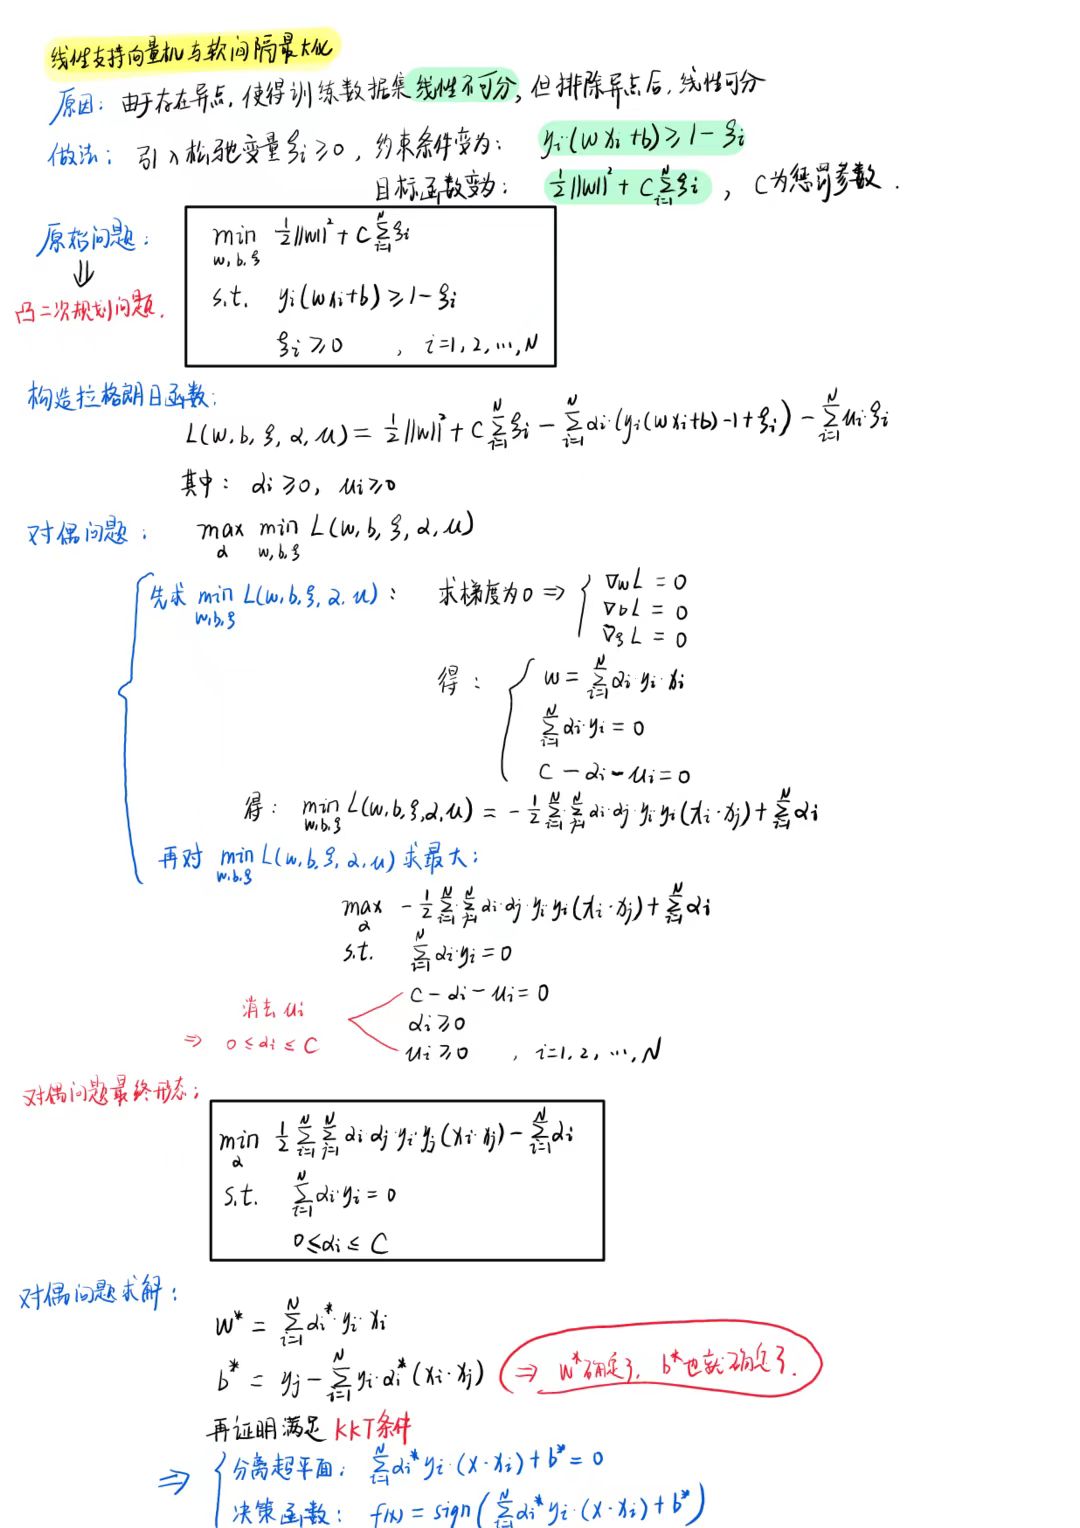 线性支持向量机与软间隔最大化
原因：由于存在异点，使得训练数据集线性不可分，但排除异点后，线性可分
做法：引入松弛变量ξi≥0，约束条件变为：yi·(wxi+b)≥1-ξi
目标函数变为：½||w||²+C∑_{i=1}^{N}ξi，C为惩罚参数.
原始问题：
min_{w,b,ξ} ½||w||²+C∑_{i=1}^{N}ξi
⇓
s.t. yi(wxi+b)≥1-ξi
凸二次规划问题.
ξi≥0 , i=1,2,…,N
构造拉格朗日函数：
L(w,b,ξ,α,u)=½||w||²+C∑_{i=1}^{N}ξi-∑_{i=1}^{N}αi·(yi(wxi+b)-1+ξi)-∑_{i=1}^{N}ui·ξi
其中：αi≥0, ui≥0
对偶问题：max_{α} min_{w,b,ξ} L(w,b,ξ,α,u)
先求 min_{w,b,ξ} L(w,b,ξ,α,u)：求梯度为0 ⇒ { ∇wL=0
∇bL=0
∇ξL=0
得：{ w=∑_{i=1}^{N}αi·yi·xi
∑_{i=1}^{N}αi·yi=0
C-αi-ui=0
得：min_{w,b,ξ} L(w,b,ξ,α,u)=-½∑_{i=1}^{N}∑_{j=1}^{N}αi·αj·yi·yi(xi·xj)+∑_{i=1}^{N}αi
再对 min_{w,b,ξ} L(w,b,ξ,α,u) 求最大：
max_{α} -½∑_{i=1}^{N}∑_{j=1}^{N}αi·αj·yi·yi(xi·xj)+∑_{i=1}^{N}αi
s.t. ∑_{i=1}^{N}αi·yi=0
消去ui
C-αi-ui=0
αi≥0
⇒ 0≤αi≤C
ui≥0 , i=1,2,…,N
对偶问题最终形态：
min_{α} ½∑_{i=1}^{N}∑_{j=1}^{N}αi·αj·yi·yj(xi·xj)-∑_{i=1}^{N}αi
s.t. ∑_{i=1}^{N}αi·yi=0
0≤αi≤C
对偶问题求解：
w*=∑_{i=1}^{N}αi*·yi·xi
b*=yj-∑_{i=1}^{N}yi·αi*(xi·xj) ⇒ w*确定了，b*也就确定了.
再证明满足KKT条件
⇒ { 分离超平面：∑_{i=1}^{N}αi*yi·(x·xi)+b*=0
决策函数：f(x)=sign(∑_{i=1}^{N}αi*yi·(x·xi)+b*)